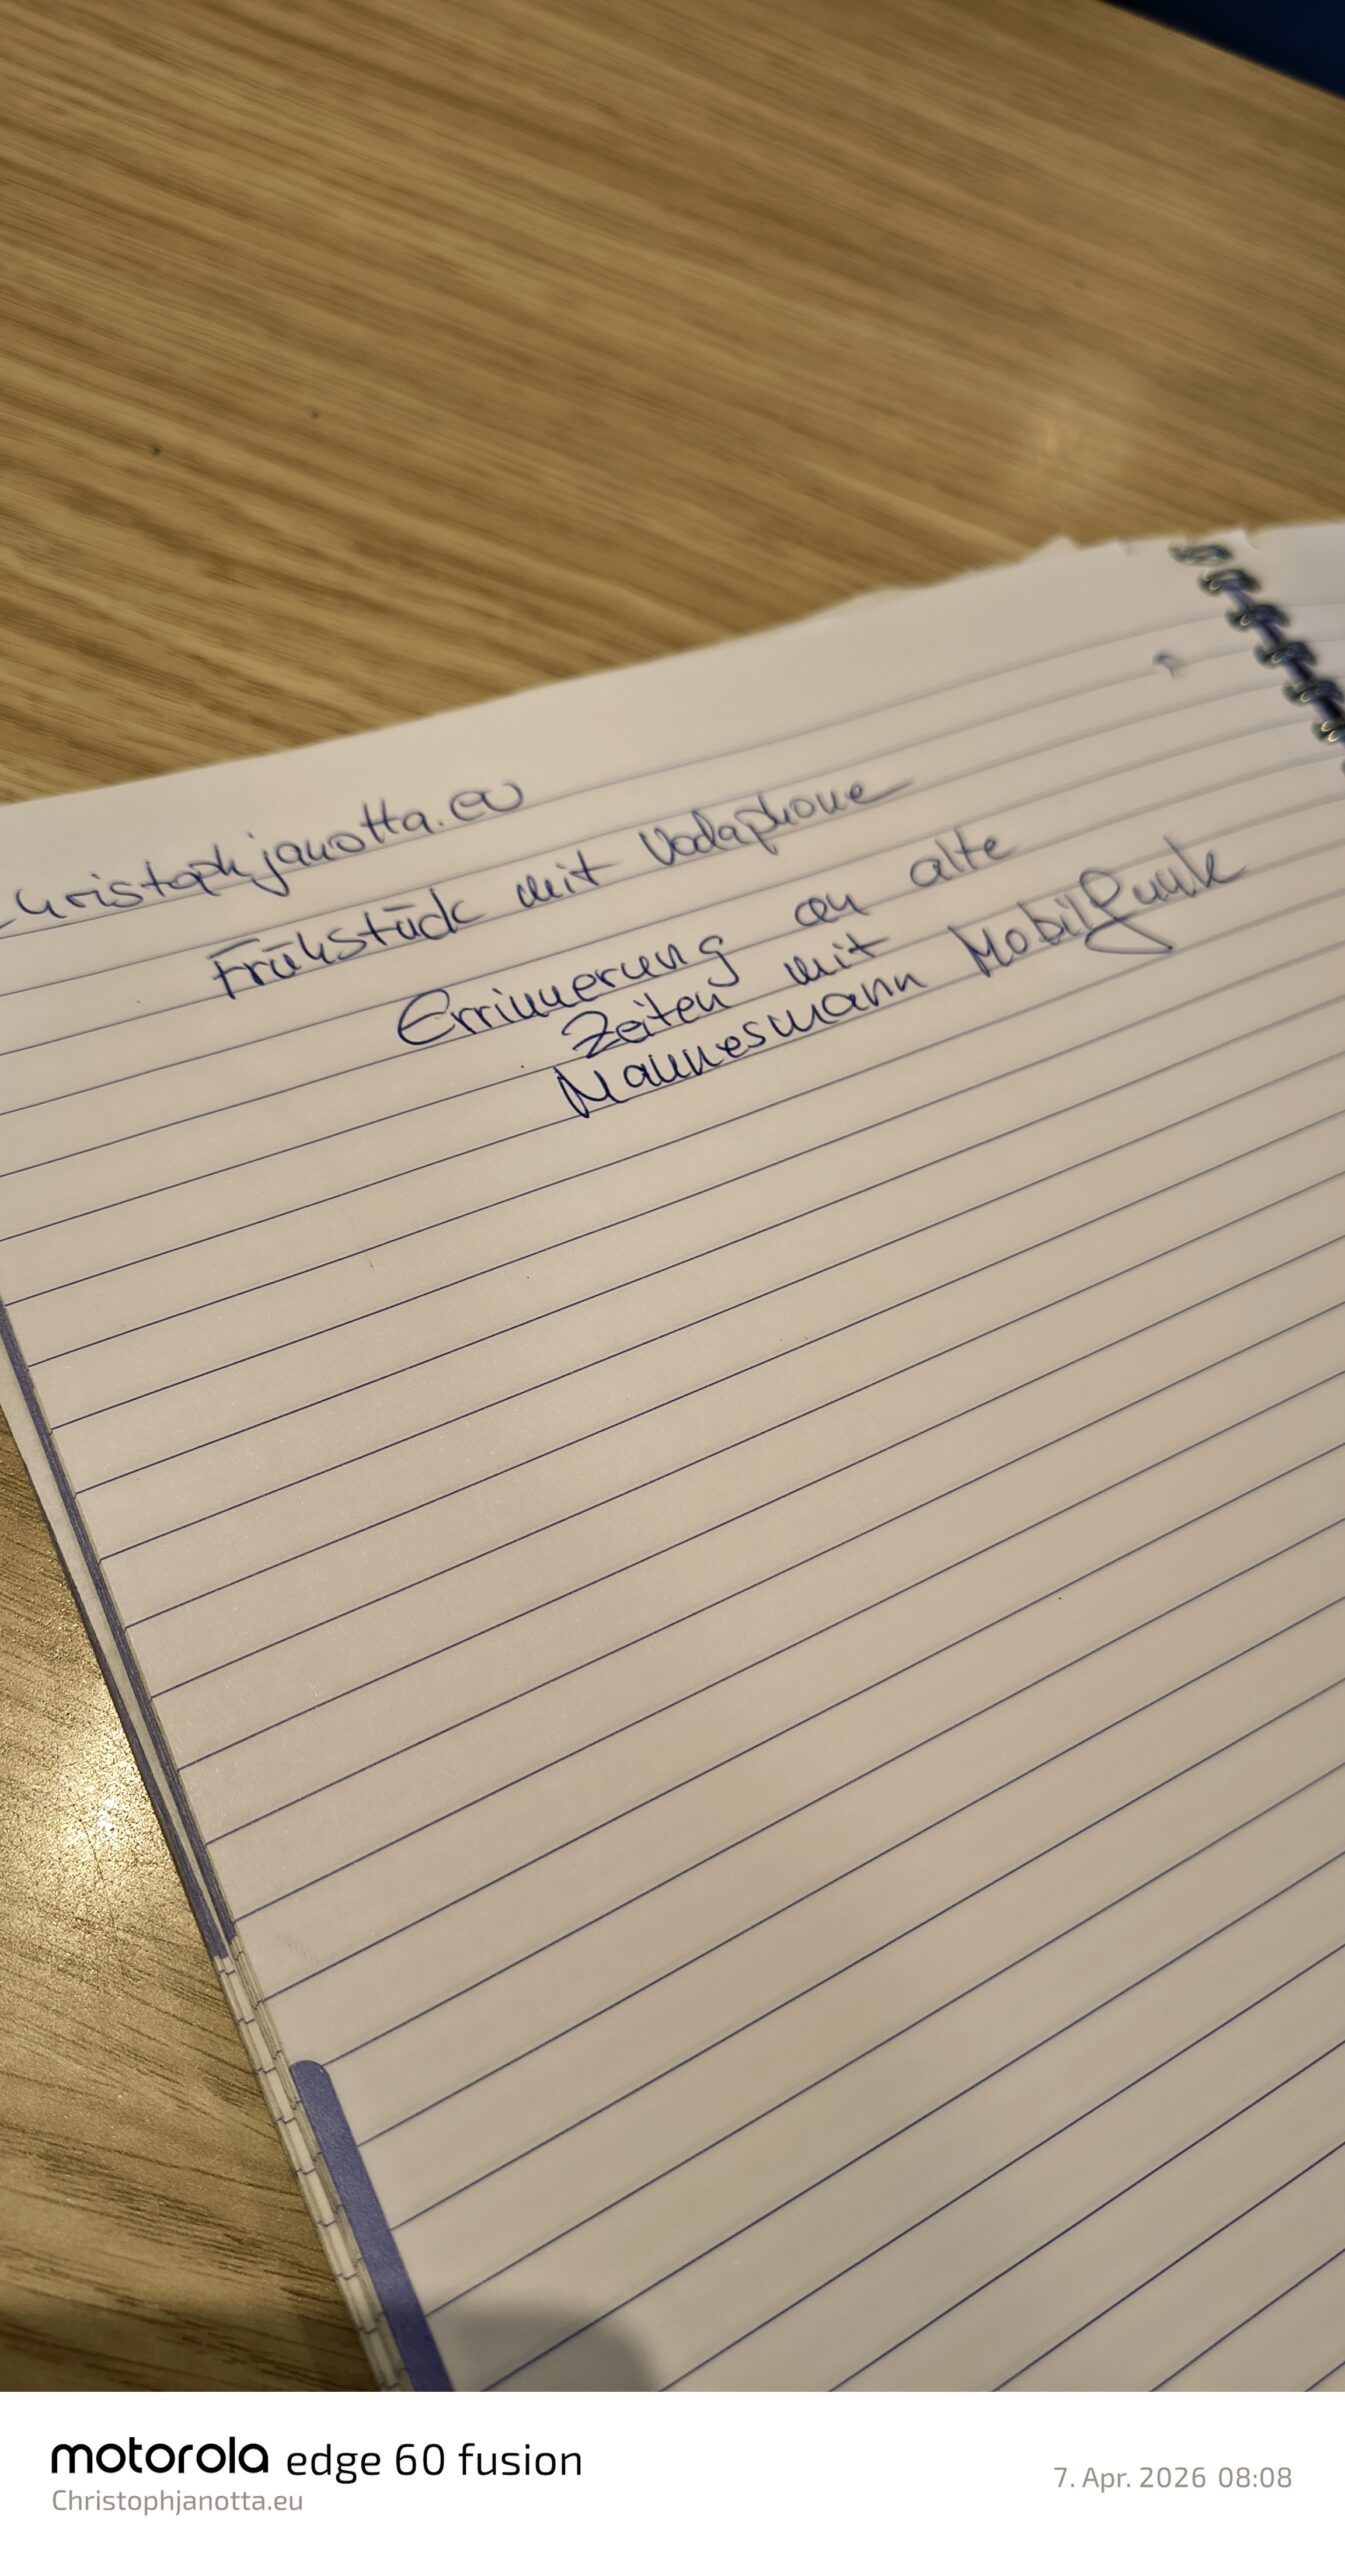 Christophjanotta.eu
Frühstück mit Vodaphone
Errinnerung an alte
Zeiten mit
Mannesmann Mobilfunk
motorola edge 60 fusion
Christophjanotta.eu
7. Apr. 2026 08:08